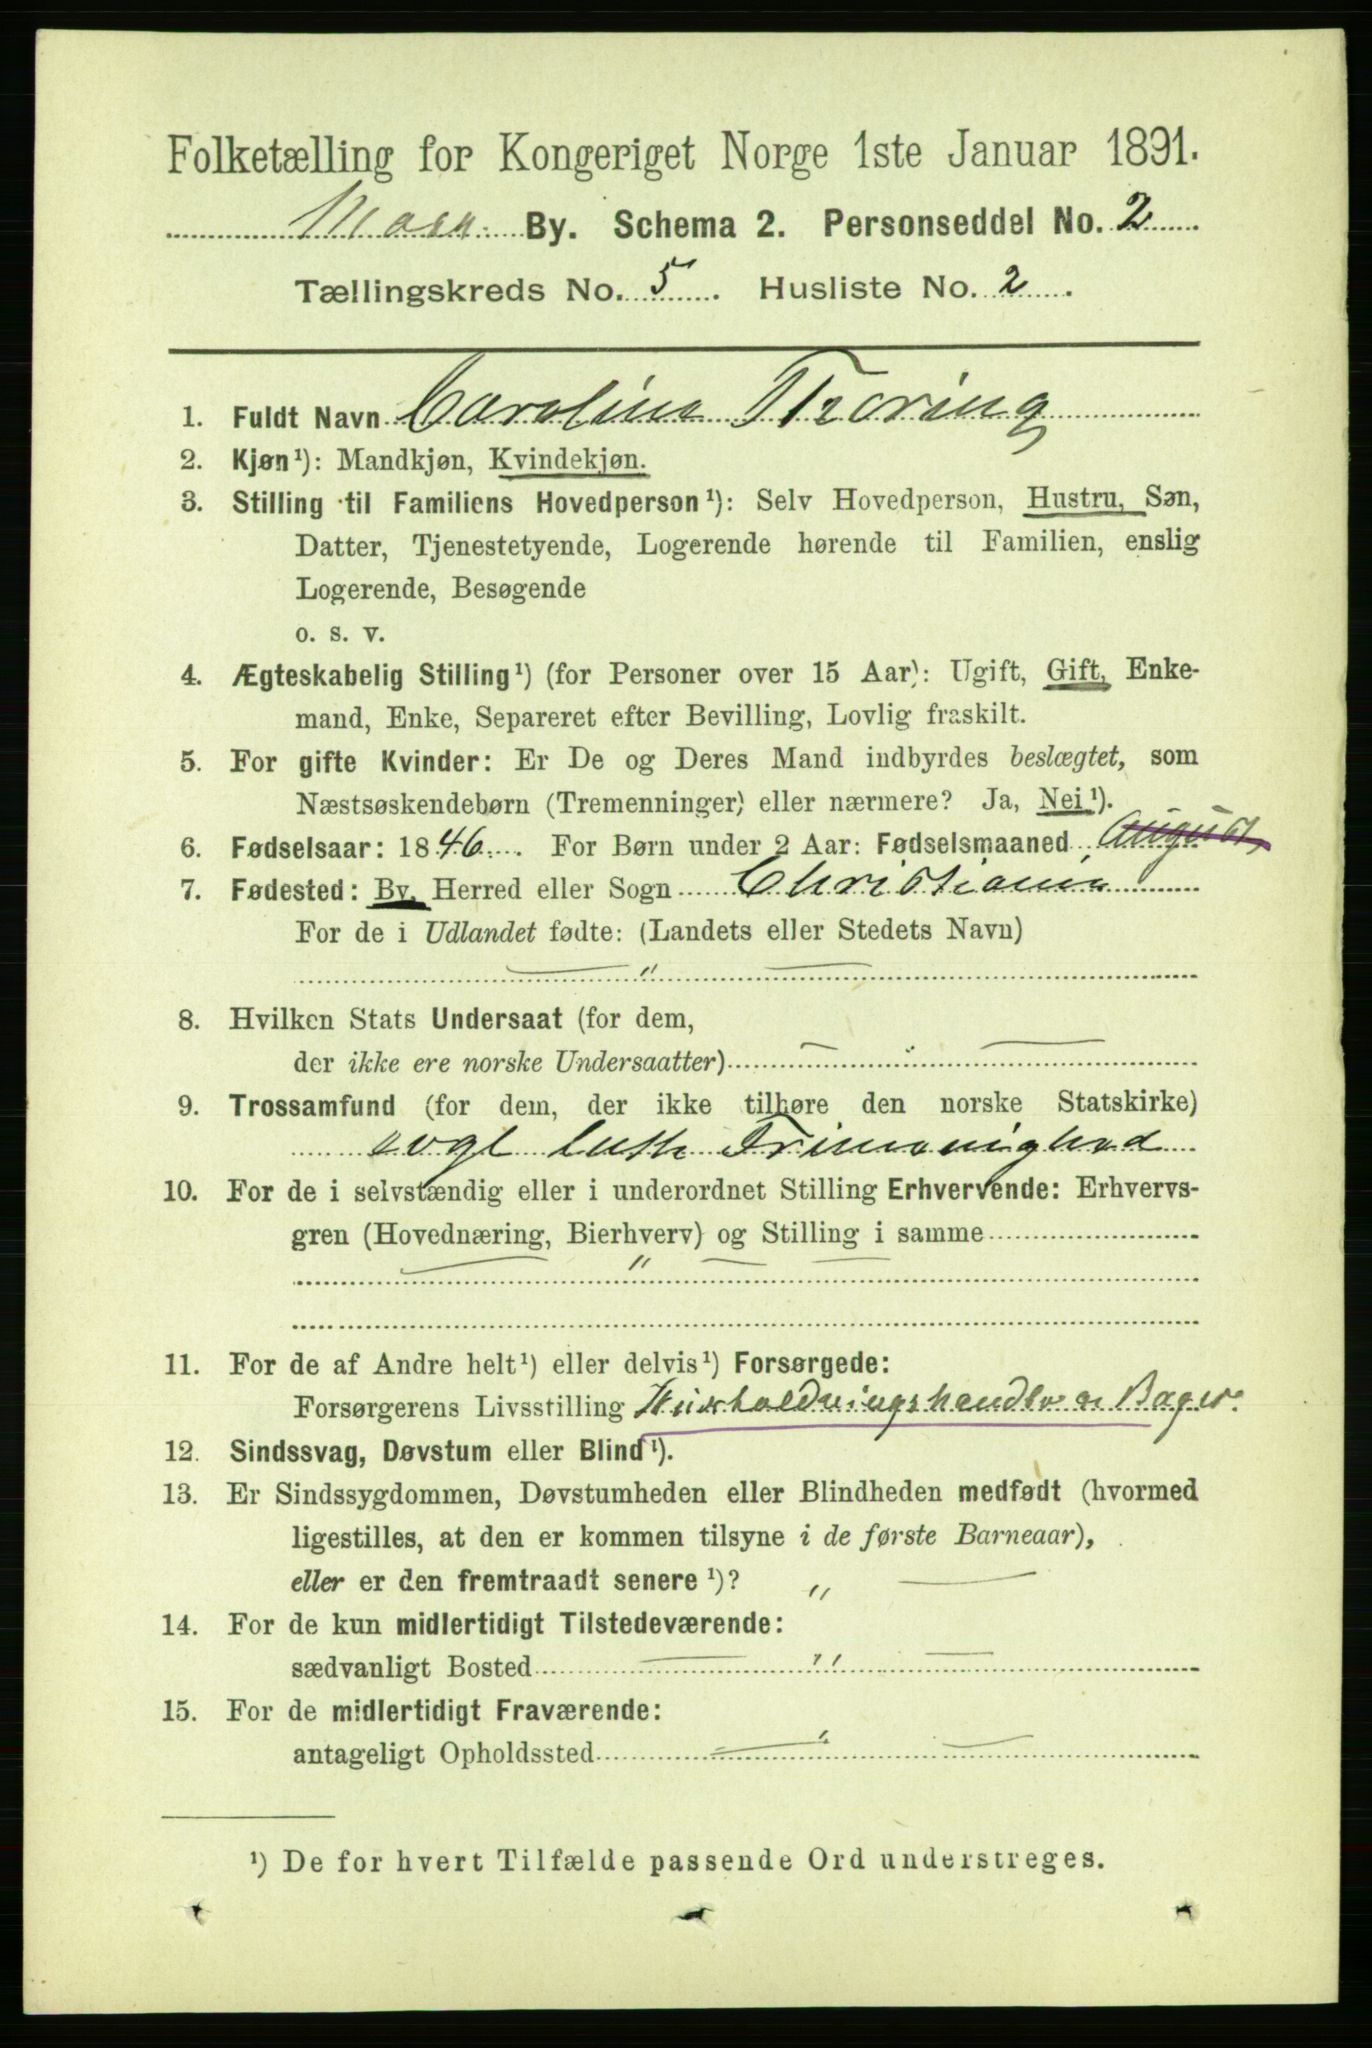 Folketælling for Kongeriget Norge 1ste Januar 1891.
Moss By. Schema 2. Personseddel No. 2
Tællingskreds No. 5. Husliste No. 2.
1. Fuldt Navn Caroline Thoring
2. Kjøn¹): Mandkjøn, Kvindekjøn.
3. Stilling til Familiens Hovedperson¹): Selv Hovedperson, Hustru, Søn,
Datter, Tjenestetyende, Logerende hørende til Familien, enslig
Logerende, Besøgende
o. s. v.
4. Ægteskabelig Stilling¹) (for Personer over 15 Aar): Ugift, Gift, Enke-
mand, Enke, Separeret efter Bevilling, Lovlig fraskilt.
5. For gifte Kvinder: Er De og Deres Mand indbyrdes beslægtet, som
Næstsøskendebørn (Tremenninger) eller nærmere? Ja, Nei¹).
6. Fødselsaar: 1846. For Børn under 2 Aar: Fødselsmaaned August,
7. Fødested: By, Herred eller Sogn Christiania
For de i Udlandet fødte: (Landets eller Stedets Navn)
"
8. Hvilken Stats Undersaat (for dem,
der ikke ere norske Undersaatter)
9. Trossamfund (for dem, der ikke tilhøre den norske Statskirke)
evgl luth Frimenighed
10. For de i selvstændig eller i underordnet Stilling Erhvervende: Erhvervs-
gren (Hovednæring, Bierhverv) og Stilling i samme
"
11. For de af Andre helt¹) eller delvis¹) Forsørgede:
Forsørgerens Livsstilling Husholdningshandler Bager
12. Sindssvag, Døvstum eller Blind¹).
13. Er Sindssygdommen, Døvstumheden eller Blindheden medfødt (hvormed
ligestilles, at den er kommen tilsyne i de første Barneaar),
eller er den fremtraadt senere¹)? "
14. For de kun midlertidigt Tilstedeværende:
sædvanligt Bosted "
15. For de midlertidigt Fraværende:
antageligt Opholdssted "
¹) De for hvert Tilfælde passende Ord understreges.